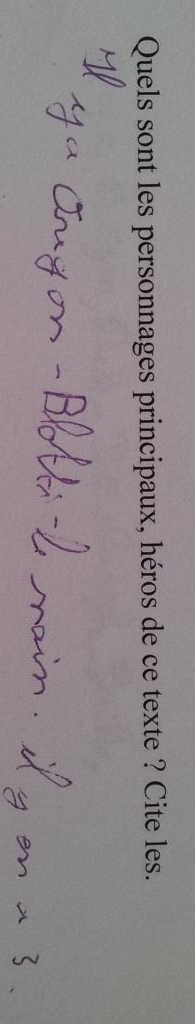 Quels sont les personnages principaux, héros de ce texte ? Cite les.
Il y a Ourgon - Blotti - le nain. il y en a 3.